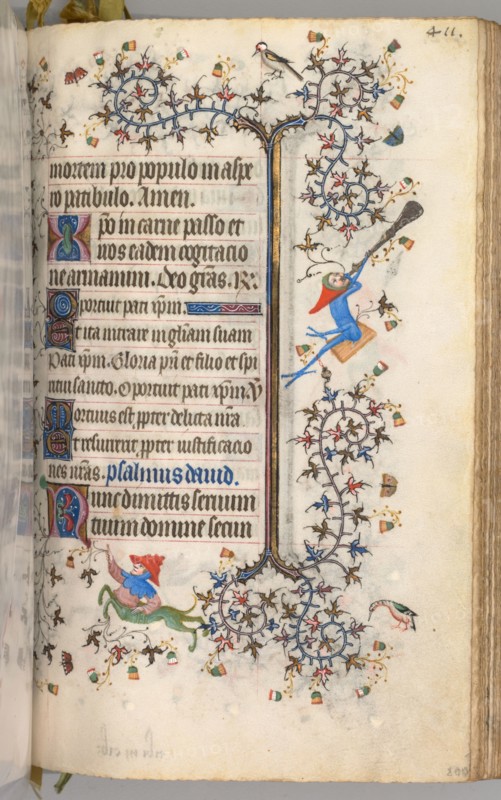 411.
mortem pro populo in aspe
ro patibulo. Amen.
Xpo in carne passo et
uos eadem cogitacio
ne armamini. Deo gr̄as. R̄.
Oportuit pati xp̄m.
Et ita intrare in gl̄iam suam
Pati xp̄m. Gloria pr̄i et filio et spi
ritui sancto. Oportuit pati xp̄m. V̄
Mortuus est ꝓpter delicta nr̄a
Et resurrexit ꝓpter iustificacio
nes nr̄as. psalmus dauid.
Nunc dimittis seruum
tuum domine secun